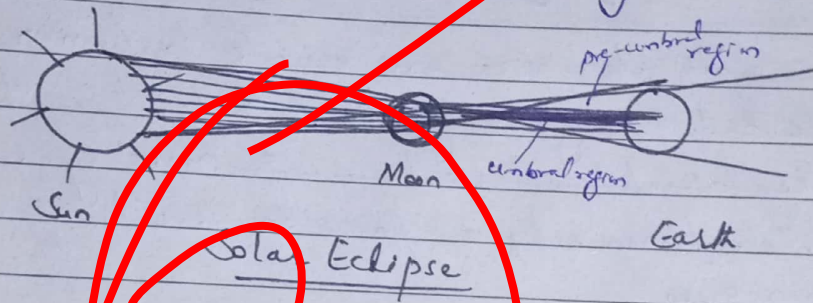 pre-umbral
region
umbral region
Moon
Sun
Earth
Solar Eclipse